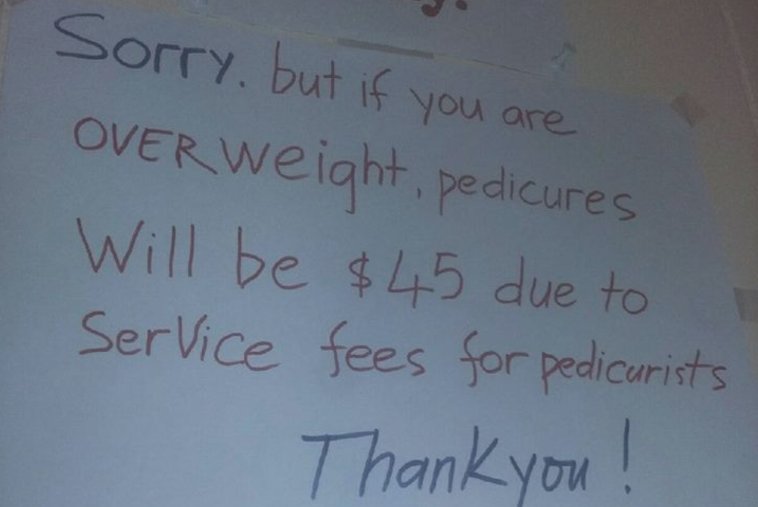 Sorry. but if you are
OVERWeight, pedicures
Will be $45 due to
SerVice fees for pedicurists
Thankyou!